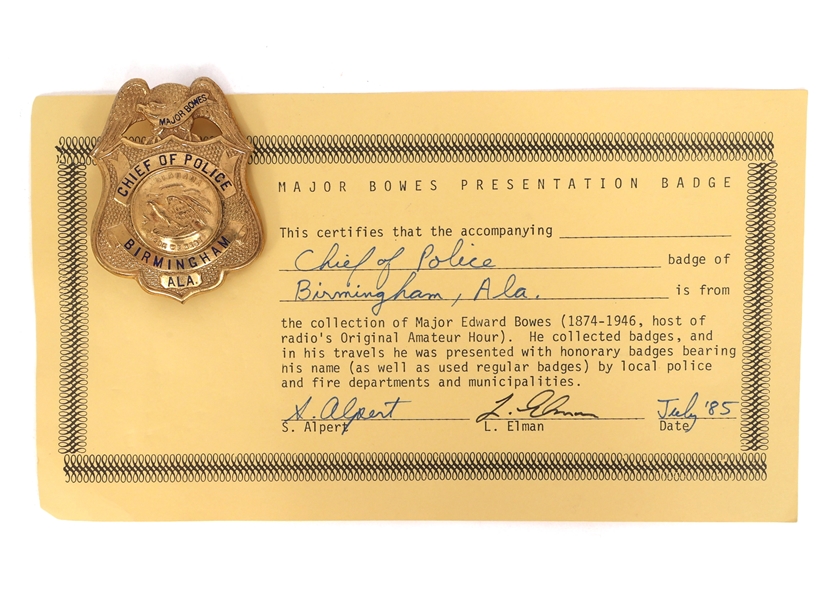 MAJOR BOWES
CHIEF OF POLICE
BIRMINGHAM
ALA.
MAJOR BOWES PRESENTATION BADGE
This certifies that the accompanying
Chief of Police badge of
Birmingham, Ala. is from
the collection of Major Edward Bowes (1874-1946, host of
radio's Original Amateur Hour). He collected badges, and
in his travels he was presented with honorary badges bearing
his name (as well as used regular badges) by local police
and fire departments and municipalities.
S. Alpert L. Elman July '85
S. Alpert L. Elman Date